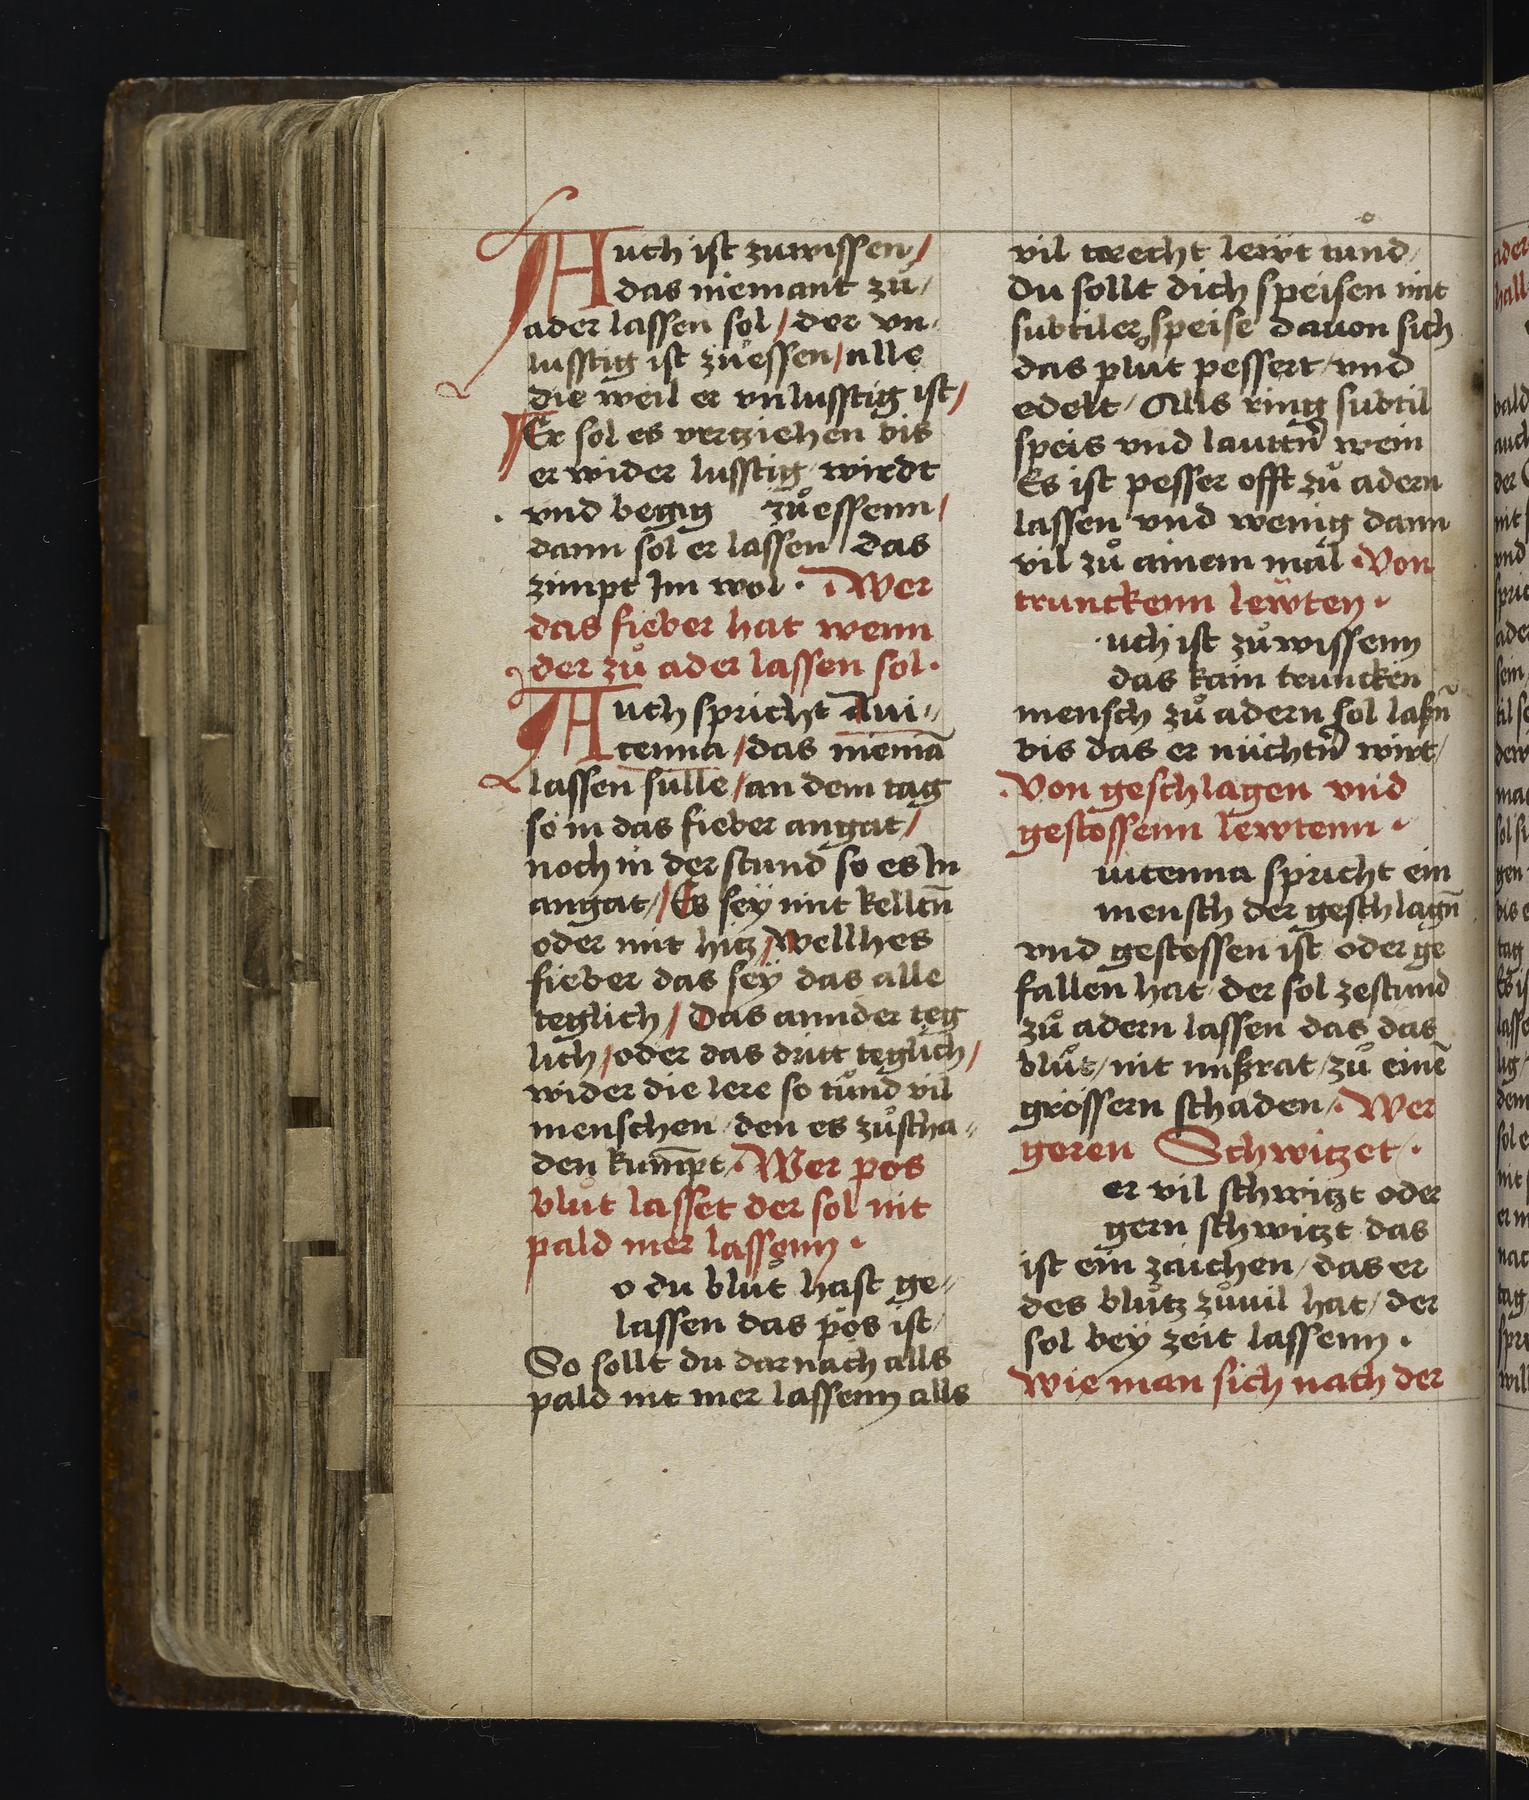 Auch ist zuwissen /
das niemant zů /
ader lassen sol / der vn-
lusstig ist zůessen / alle
die weil er vnlusstig ist /
Er sol es vertziehen bis
er wider lusstig wirdt
vnd begig zůessenn /
dann sol er lassen / das
zimpt Im wol · Wer
das fieber hat wenn
der zů ader lassen sol ·
Auch spricht Aui-
cenna / das niemā
lassen sülle / an dem tag
so in das fieber angat /
noch in der stund so es In
angat / Es seÿ mit kelltn̄
oder mit hitz / wellhes
fieber das seÿ das alle
teglich / Das annder teg
lich / oder das dritt teglich /
wider die lere so tůnd vil
menschen / den es zůscha-
den kum̄pt · Wer pos
blůt lasset der sol nit
pald mer lassenn ·
o du blůt hast ge-
lassen das pös ist /
So sollt du darnach alls
pald nit mer lassenn alls
vil torecht lewt tůnd /
Du sollt dich speisen mit
subtiler speise dauon sich
das plůt pessert / vnd
edelt / Alls ring subtil
speis vnd lauttn̄ wein
Es ist pesser offt zů adern
lassen vnd wenig dann
vil zů ainem mal · Von
trunckenn lewten ·
uch ist zůwissenn
das kain truncken
mensch zů adern sol laßn̄
bis das er nüchtn̄ wirt /
Von geschlagen vnd
gestossenn lewtenn ·
uicenna spricht ein
mensch der geschlagn̄
vnd gestossen ist oder ge
fallen hat der sol zestund
zů adern lassen das das
blůt / nit mißrat / zů einē
grössern schaden / · Wer
geren Schwitzet ·
er vil schwitzt oder
gern schwitzt das
ist ein zaichen / das er
des blůtz zůuil hat / der
sol bey zeit lassenn ·
Wie man sich nach der